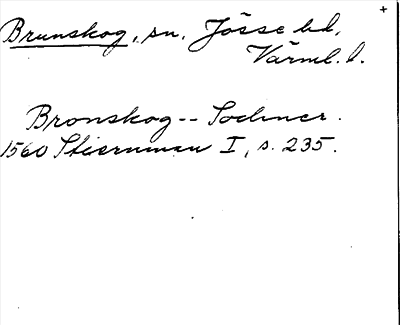 Brunskog, sn. Jösse hd,
Värml. l.
Bronskog -- Sochner.
1560 Stiernman I, s. 235.